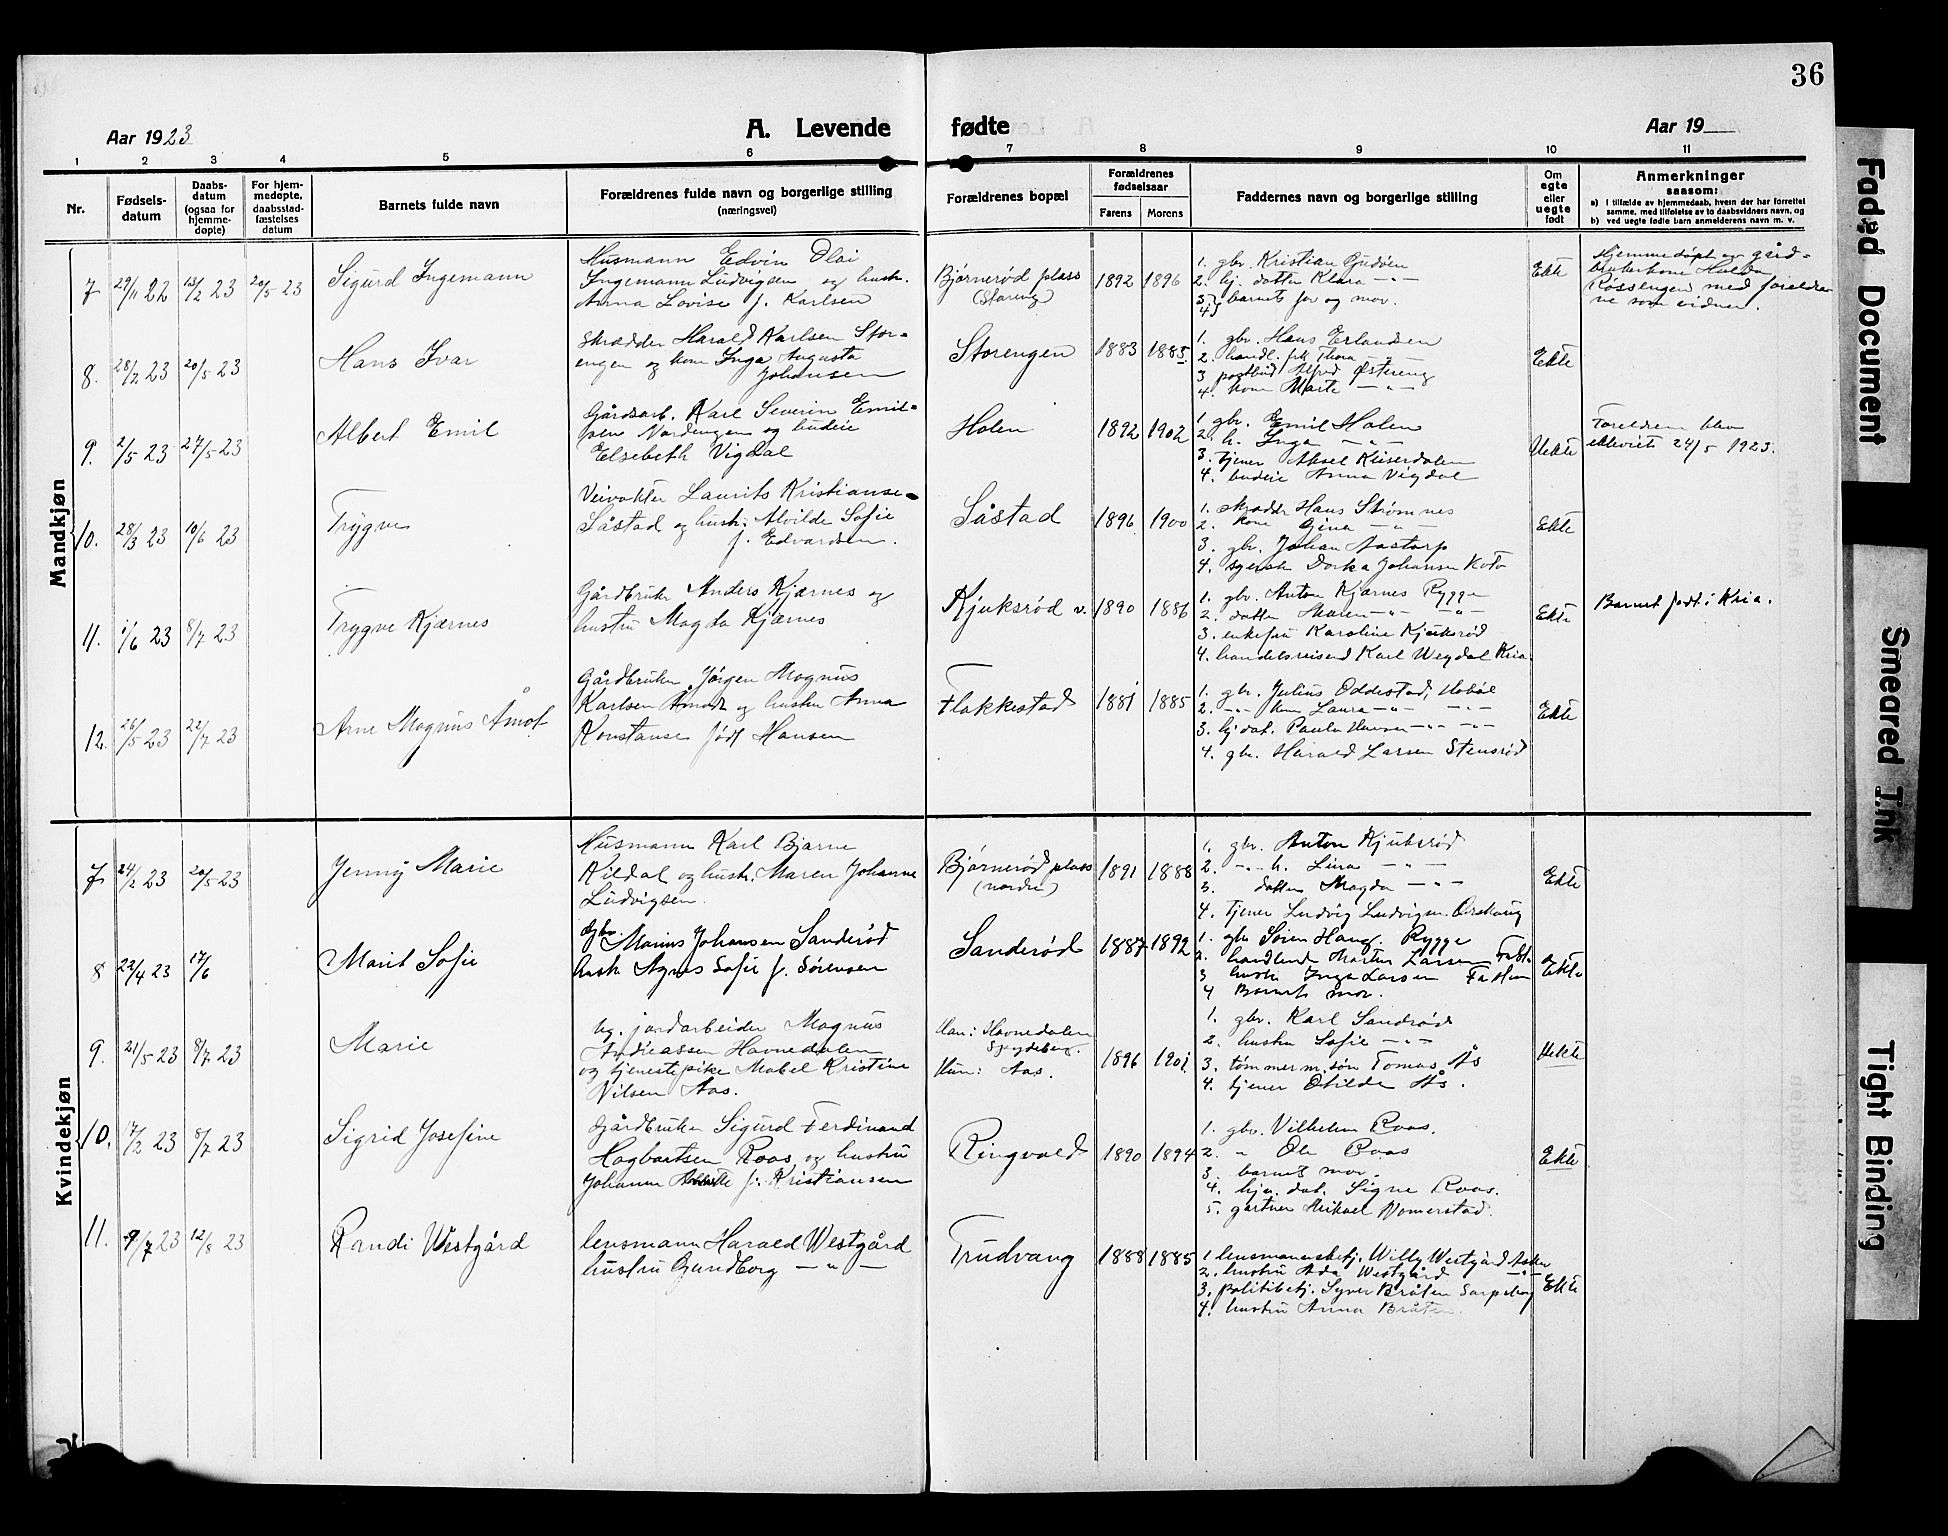 36
Aar 1923
A. Levende fødte
Aar 19
1 2 3 4 5 6 7 8 9 10 11
Nr.
Fødsels-
datum
Daabs-
datum
(ogsaa for
hjemme-
døpte)
For hjem-
medøpte,
daabsstad-
fæstelses
datum
Barnets fulde navn
Forældrenes fulde navn og borgerlige stilling
(næringsvei)
Forældrenes bopæl
Forældrenes
fødselsaar
Farens Morens
Faddernes navn og borgerlige stilling
Om
egte
eller
uegte
født
Anmerkninger
saasom:
a) i tilfælde av hjemmedaab, hvem der har forrettet
samme, med tilføielse av to daabsvidners navn, og
b) ved uegte fødte barn anmelderens navn m. v.
Mandkjøn
7 29/11 22 13/2 23 20/5 23
Sigurd Ingemann
Husmann Edvin Olai
Ingemann Ludvigsen og hustr.
Anna Lovise f. Karlsen
Bjørnerød plass
1892 1896
1. gbr. Kristian
2. hj. datter Klara - " -
3. } barnets far og mor.
4. }
Ekte
Hjemmedøpt av gård-
brukerkone
Røssengen med foreldre
ne som vidner.
8. 28/2 23 20/5 23
Hans Ivar
Skrædder Harald Karlsen Stor-
engen og kone Inga Augusta
Johansen
Storengen
1883 1885.
1. gbr. Hans Erlandsen
2. handl. frk Thora - " -
3 postbud Alfred Østereng
4. kone Marte - " -
Ekte
9. 2/5 23 27/5 23
Albert Emil
Gårdsarb. Karl Severin Emil-
sen Nordengen og budeie
Elsebeth Vigdal
Holen
1892 1902
1. gbr. Emil Holen
2. h. Inga - " -
3. tjener Aksel Kiserdalen
4. budeie Anna Vigdal
Uekte
Foreldrene blev
ekteviet 24/5 1923.
10. 28/3 23 10/6 23
Trygve
Veivokter Laurits Kristianse-
Såstad og hustr. Alvilde Sofie
f. Edvardsen.
Såstad
1896 1900
1. skrædder Hans Strømnes
2. kone Gina - " -
3. gbr. Johan Aastorp
4. syerske Dorka Johansen
Ekte
11. 1/6 23 8/7 23
Trygve Kjærnes
Gårdbruker Anders Kjærnes og
hustru Magda Kjærnes
Kjuksrød v.
1890 1886
1. gbr. Anton Kjærnes Rygge
2. datter Maren - " - - " -
3. enkefru Karoline Kjuksrød
4. handelsreisend Karl Wegdal Kria.
Ekte
Barnet født i Kria.
12. 26/5 23 22/7 23
Arne Magnus Åmot
Gårdbruker Jørgen Magnus
Karlsen Åmodt og hustru Anna
Konstanse født Hansen
Flakkestad
1881 1885
1. gbr. Julius Oddestad, Hobøl
2. - " - kone Laura - " - - " -
3. hj. dat. Paula Hansen - " - - " -
4. gbr. Harald Larsen Stensrød
Ekte
Kvindekjøn
7 24/2 23 20/5 23
Jenny Marie
Husmann Karl Bjarne
Kildal og hustr. Maren Johanne
Ludvigsen.
Bjørnerød plass
(nordre)
1891 1888
1. gbr. Anton Kjuksrød
2. - " - h. Lina - " -
3. datter Magda - " -
4. tjener Ludvig Ludvigsen
Ekte
8 22/4 23 17/6
Marit Sofie
gbr. Marius Johansen Sanderød
hustr Agnes Sofie f. Sørensen
Sanderød
1887 1892
1. gbr Søren Haug. Rygge
2. handlende Martin Larsen
3 hustr Inga Larsen
4 Barnets mor.
Ekte
9. 21/5 23 8/7 23
Marie
ug. jordarbeider Magnus
Andreassen Havnedalen
og tjenestepike Mabel Kristine
Nilsen Aas.
Han: Havnedalen
Spydeberg.
Hun: Aas.
1896 1901
1. gbr. Karl Sandrød
2. hustru Sofie - " -
3. tømmerm. søn Tomas Ås
4. tjener Otilde Ås.
Uekte
10. 17/2 23 8/7 23
Sigrid Josefine
Gårdbruker Sigurd Ferdinand
Hagbartsen Roos og hustru
Johanne f. Kristiansen
Ringvold
1890 1894
1. gbr. Vilhelm Roos.
2. " Ole Roos
3. barnets mor.
4. hjv. dat. Signe Roos.
5. gartner Mikael
Ekte
11. 9/7 23 12/8 23
Randi Westgård
lensmann Harald Westgård
hustru Gundborg - " -
Trudvang
1888 1885
1 lensmannsbetj. Willy Westgård Asker
2. hustru Ada Westgård - " -
3. politibetj. Syver Bråten Sarpsborg
4. hustru Anna Bråten.
Ekte
Faded Document
Smeared Ink
Tight Binding